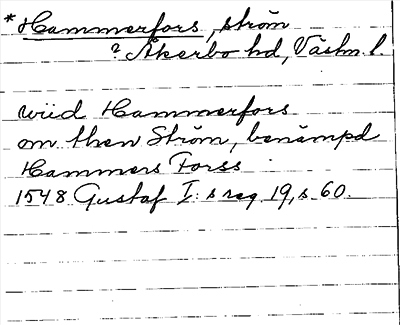 * Hammerfors, ström
? Åkerbo hd, Västm. l.
wiid Hammerfors
om then Ström, benämpd
Hammers Forss
1548 Gustaf I:s reg 19, s 60.